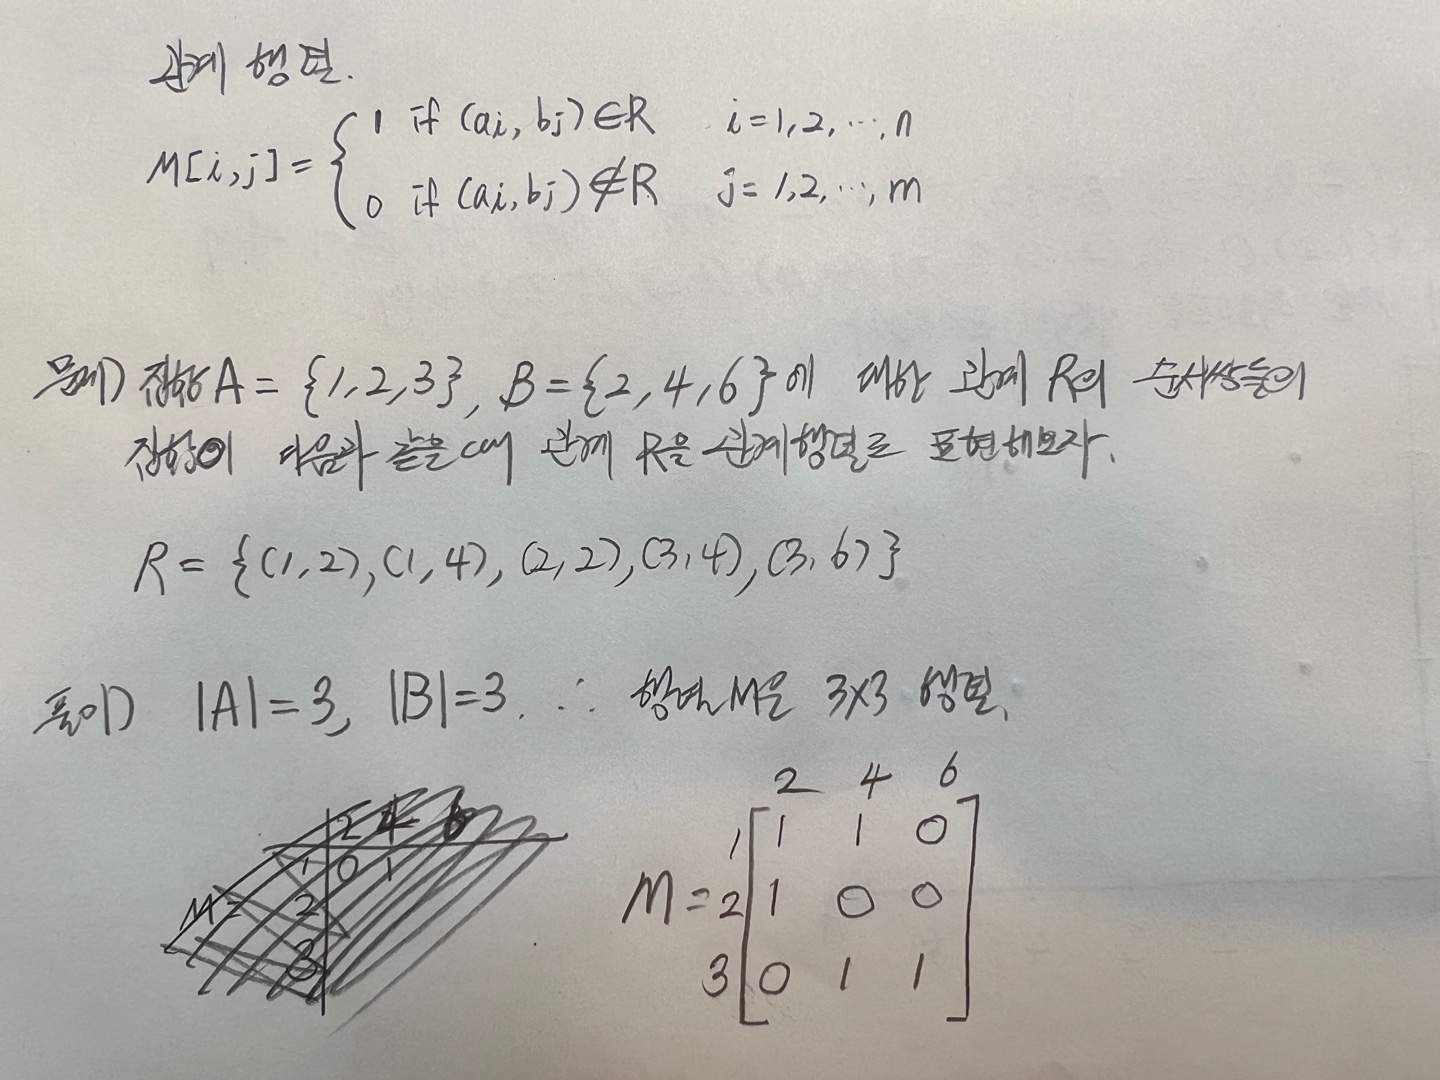 관계 행렬.
M[i,j] = { 1 if (ai, bj) ∈ R i=1,2,⋯,n
0 if (ai, bj) ∉ R j=1,2,⋯,m
문제) 집합 A = {1,2,3}, B = {2,4,6}에 대한 관계 R의 순서쌍들의
집합이 다음과 같을 때 관계 R을 관계행렬로 표현해보자.
R = {(1,2),(1,4),(2,2),(3,4),(3,6)}
풀이) |A|=3, |B|=3. ∴ 행렬 M은 3×3 행렬.
2 4 6
1 0 1
2
M=
3
2 4 6
1 [1 1 0]
M = 2 [1 0 0]
3 [0 1 1]